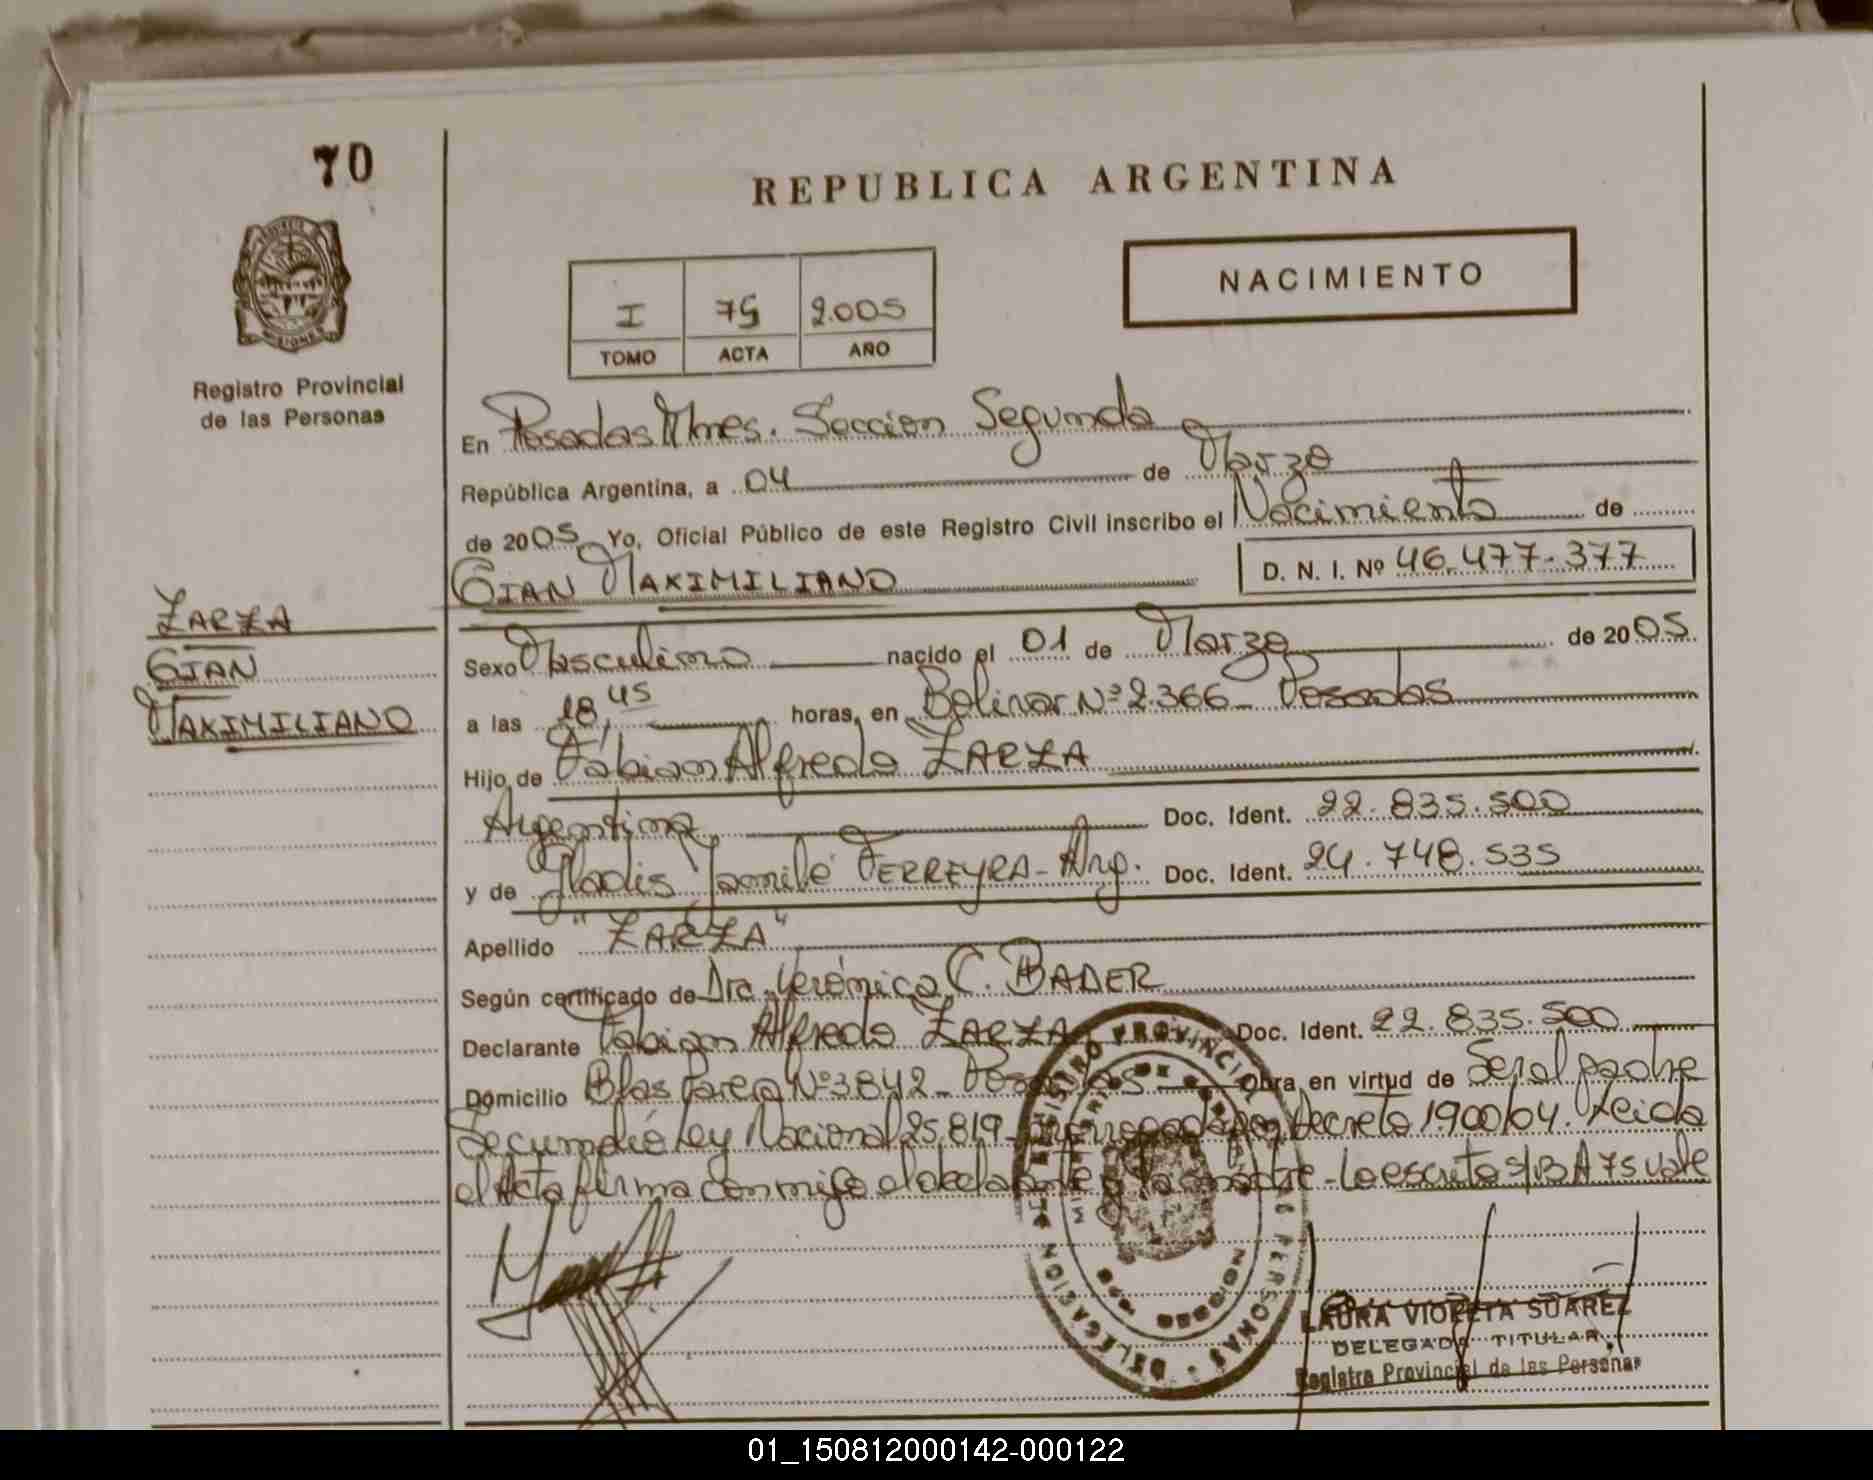 70
REPUBLICA ARGENTINA
NACIMIENTO
I 75 2.005
TOMO ACTA AÑO
Registro Provincial
de las Personas
En Posadas Mnes. Seccion Segunda
República Argentina, a 04 de Marzo
de 2005 Yo, Oficial Público de este Registro Civil inscribo el Nacimiento de
GIAN MAXIMILIANO D. N. I. Nº 46.477.377
ZARZA
GIAN
MAXIMILIANO
Sexo Masculino nacido el 01 de Marzo de 2005
a las 18,45 horas, en Bolivar Nº 2.366 - Posadas
Hijo de Fabian Alfredo ZARZA
Argentina Doc. Ident. 22.835.500
y de Gladis Yamile FERREYRA - Arg. Doc. Ident. 24.748.535
Apellido "ZARZA"
Según certificado de Dra. Verónica C. BADER
Declarante Fabian Alfredo ZARZA Doc. Ident. 22.835.500
Domicilio Blas Parera Nº 3842 - Posadas Obra en virtud de Ser el padre
Se cumplió Ley Nacional 25.819 - prorrogada por Decreto 1900/04. Leida
el Acta firma conmigo el declarante y la madre - Lo escrito s/B A 75 vale
REGISTRO PROVINCIAL DE LAS PERSONAS
DELEGACION
LAURA VIOLETA SUAREZ
DELEGADA TITULAR
Registro Provincial de las Personas
01_150812000142-000122